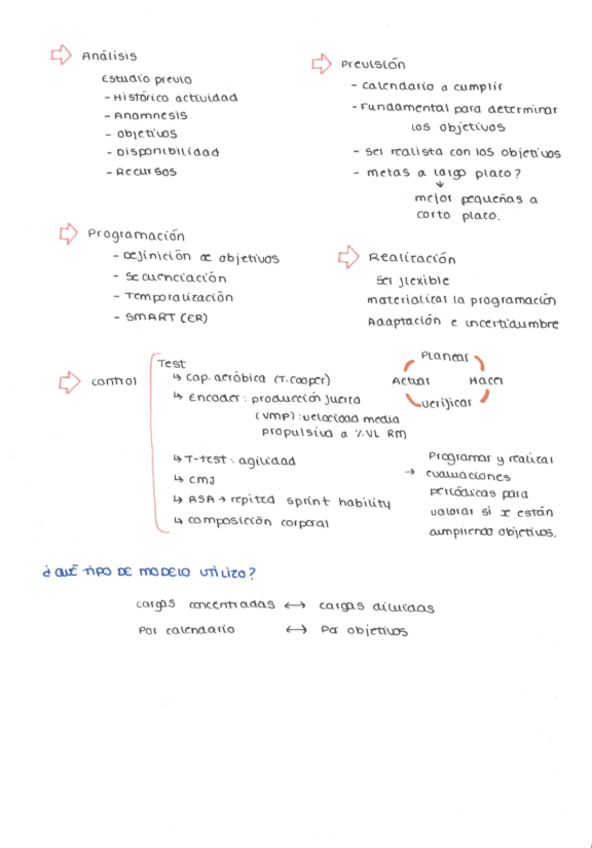 Análisis
Estudio previo
- Histórico actividad
- Anamnesis
- objetivos
- Disponibilidad
- Recursos
Previsión
- calendario a cumplir
- Fundamental para determinar
los objetivos
- ser realista con los objetivos
- metas a largo plazo?
↓
mejor pequeñas a
corto plazo.
Programación
- Definición de objetivos
- Secuenciación
- Temporalización
- SMART (ER)
Realización
ser flexible
materializar la programación
Adaptación e incertidumbre
control
Test
↳ cap. aeróbica (T. cooper)
↳ Encoder: producción fuerza
(VMP): velocidad media
propulsiva a %VL RM
↳ T-test: agilidad
↳ CMJ
↳ RSA → repited sprint hability
↳ composición corporal
Planear
Actuar Hacer
verificar
Programar y realizar
→ evaluaciones
periódicas para
valorar si x están
cumpliendo objetivos.
¿QUÉ TIPO DE MODELO UTILIZO?
cargas concentradas ↔ cargas diluidas
Por calendario ↔ Por objetivos